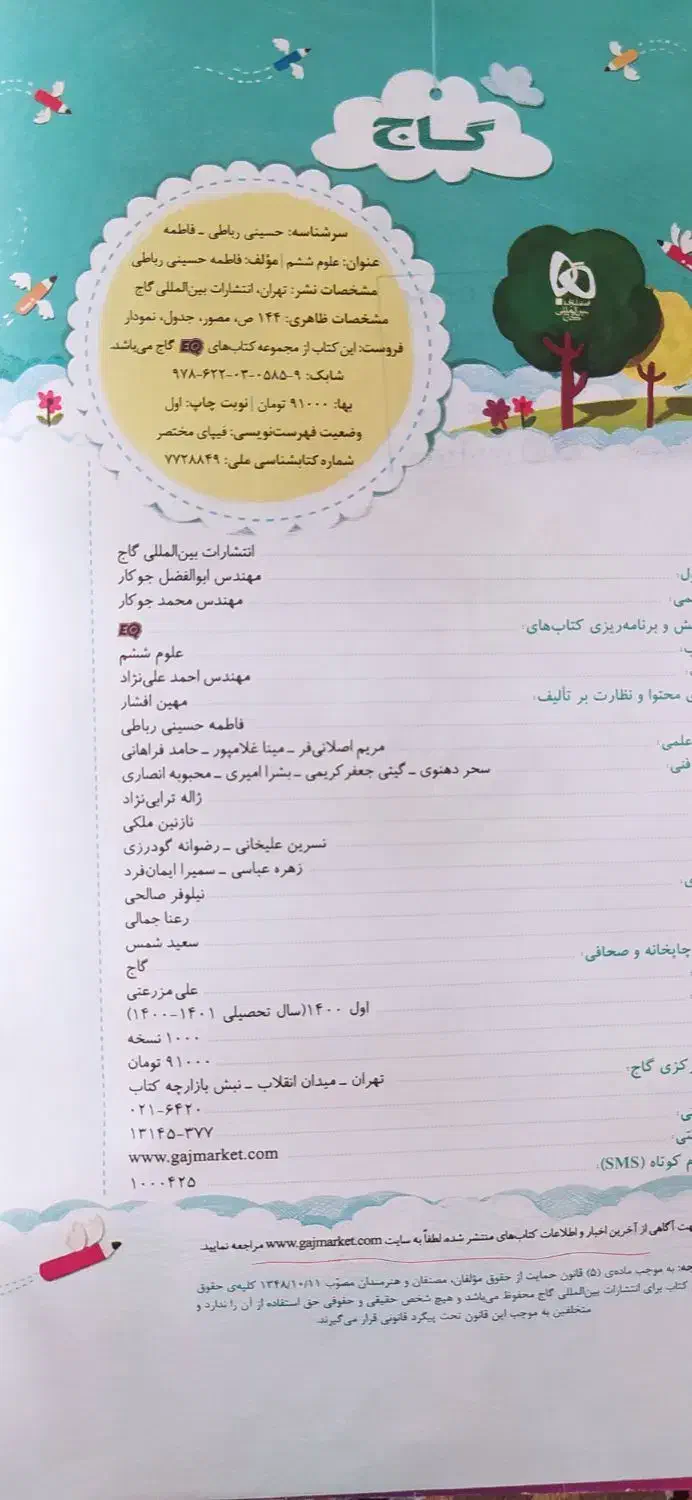 گاج
انتشارات
بین‌المللی
گاج
سرشناسه: حسینی رباطی ـ فاطمه
عنوان: علوم ششم | مؤلف: فاطمه حسینی رباطی
مشخصات نشر: تهران، انتشارات بین‌المللی گاج
مشخصات ظاهری: ۱۴۴ ص، مصور، جدول، نمودار
فروست: این کتاب از مجموعه کتاب‌های EQ گاج می‌باشد.
شابک: ۹-۰۵۸۵-۰۳-۶۲۲-۹۷۸
بها: ۹۱۰۰۰ تومان | نوبت چاپ: اول
وضعیت فهرست‌نویسی: فیپای مختصر
شماره کتابشناسی ملی: ۷۷۲۸۸۴۹
انتشارات بین‌المللی گاج
مهندس ابوالفضل جوکار
مهندس محمد جوکار
و برنامه‌ریزی کتاب‌های: EQ
علوم ششم
مهندس احمد علی‌نژاد
محتوا و نظارت بر تألیف: مهین افشار
فاطمه حسینی رباطی
علمی: مریم اصلانی‌فر ـ مینا غلامپور ـ حامد فراهانی
فنی: سحر دهنوی ـ گیتی جعفر کریمی ـ بشرا امیری ـ محبوبه انصاری
ژاله ترابی‌نژاد
نازنین ملکی
نسرین علیخانی ـ رضوانه گودرزی
زهره عباسی ـ سمیرا ایمان‌فرد
نیلوفر صالحی
رعنا جمالی
سعید شمس
چاپخانه و صحافی: گاج
علی مزرعتی
اول ۱۴۰۰(سال تحصیلی ۱۴۰۱-۱۴۰۰)
۱۰۰۰ نسخه
۹۱۰۰۰ تومان
گاج: تهران ـ میدان انقلاب ـ نبش بازارچه کتاب
۰۲۱-۶۴۲۰
۱۳۱۴۵-۳۷۷
www.gajmarket.com
کوتاه (SMS): ۱۰۰۰۴۲۵
آگاهی از آخرین اخبار و اطلاعات کتاب‌های منتشر شده، لطفاً به سایت www.gajmarket.com مراجعه نمایید.
به موجب ماده‌ی (۵) قانون حمایت از حقوق مؤلفان، مصنفان و هنرمندان مصوّب ۱۳۴۸/۱۰/۱۱ کلیه‌ی حقوق
کتاب برای انتشارات بین‌المللی گاج محفوظ می‌باشد و هیچ شخص حقیقی و حقوقی حق استفاده از آن را ندارد و
متخلفین به موجب این قانون تحت پیگرد قانونی قرار می‌گیرند.